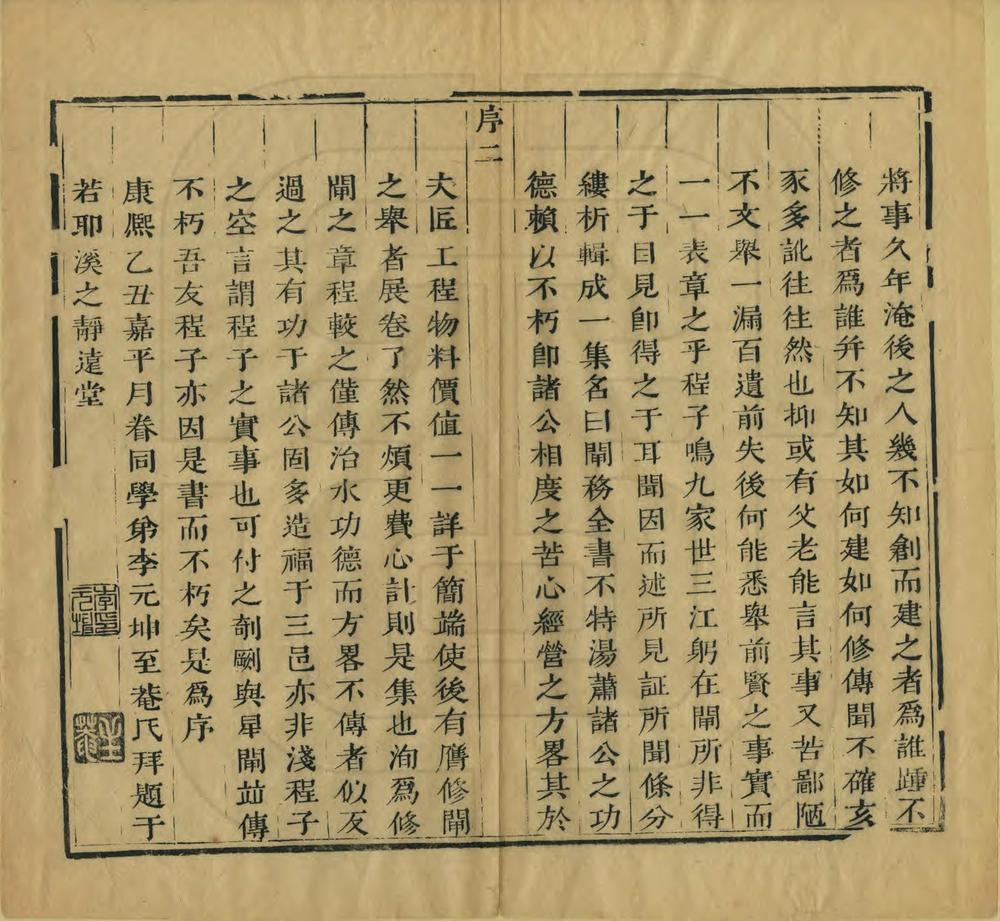 將事久年淹後之人幾不知創而建之者爲誰踵而不
修之者爲誰幷不知其如何建如何修傳聞不確亥
豕多訛往往然也抑或有父老能言其事又苦鄙陋
不文舉一漏百遺前失後何能悉舉前賢之事實而
一一表章之乎程子鳴九家世三江躬在閘所非得
之于目見卽得之于耳聞因而述所見証所聞條分
縷析輯成一集名曰閘務全書不特湯蕭諸公之功
德賴以不朽卽諸公相度之苦心經營之方畧其於
序二
大匠工程物料價值一一詳于簡端使後有膺修閘
之舉者展卷了然不煩更費心計則是集也洵爲修
閘之章程較之僅傳治水功德而方畧不傳者似反
過之其有功于諸公固多造福于三邑亦非淺程子
之空言謂程子之實事也可付之剞劂與星閘並傳
不朽吾友程子亦因是書而不朽矣是爲序
康熙乙丑嘉平月眷同學弟李元坤至菴氏拜題于
若耶溪之靜遠堂
李印元坤
至菴